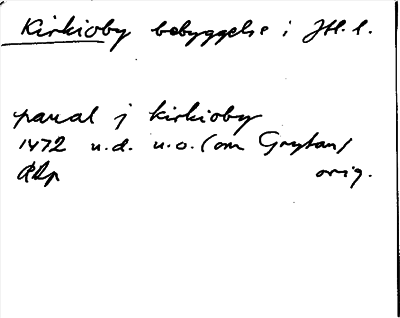 Kirkioby bebyggelse i Jäl. l.
panal j kirkioby
1472 u.d. u.o. (om Grytan)
RAp orig.